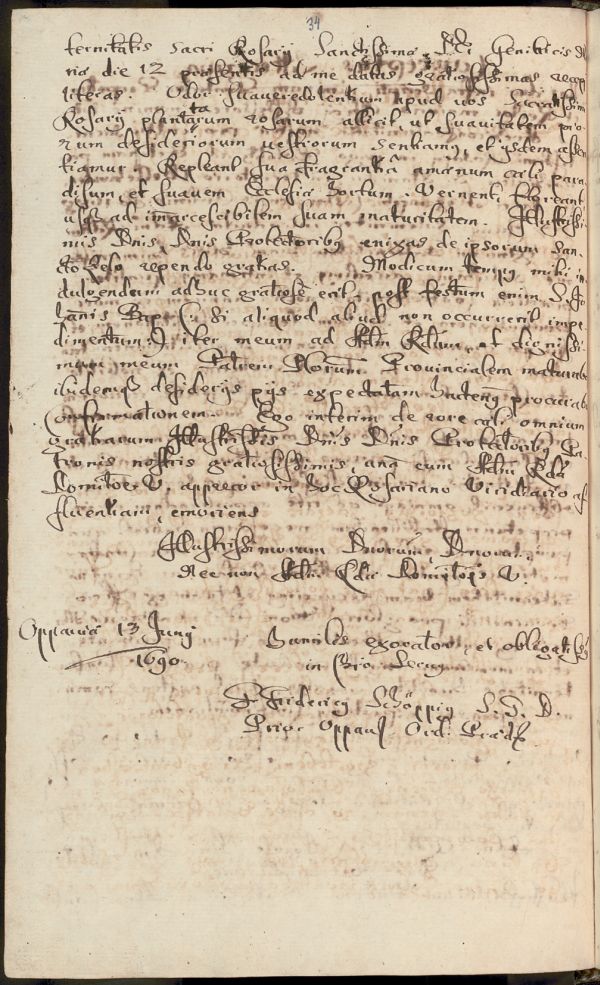 34
ternitatis Sacri Rosarij Sanctissimæ Dei Genitricis
ria die 12 præsentis ad me datas gratiosissimas
literas. Odor suaveredolentium apud vos Sacratissim
Rosarij plantarum rosarum allicit, ut suavitatem pio
rum desideriorum vestrorum sentiamq, et ijsdem assen
tiamur. Repleant sua fragrantiâ amænum cæli para
disum, et suavem Ecclesiæ hortum. Vernent, floreant
usq ad immarcescibilem suam maturitatem. Illustrissi
mis Dnis Dnis Protectoribq enixas de ipsorum San
cto Zelo rependo gratias. Modicum tempq mihi in
dulgendum adhuc gratiose erit, post festum enim S. Jo
hanis Bap: (: Si aliquod aliud non occurrerit impe
dimentum:) iter meum ad Adm Rdum, et dignissi
mum meum Patrem Norum Provincialem maturabo
ibidemq desiderijs pijs expectatam hucteng procurabo
Confirmationem. Ego interim de rore cæli omnium
gratiarum Illustrissis Dnis Dnis Protectoribq Pa
tronis nostris gratiosissimis, unà cum Adm Rda
Domõe V. apprecor in hoc Rosariano Viridiario af
fluentiam, emoriens
Illustrissimorum Dnorum Dnorum
Nec non Adm Rdæ Domõis V.
Oppaviæ 13 Junij
1690
humiles exorator, et obligatissq
in Xto Servq
F. Fridericq Schöppig S. T. D.
Prior Oppav Ord: Præd